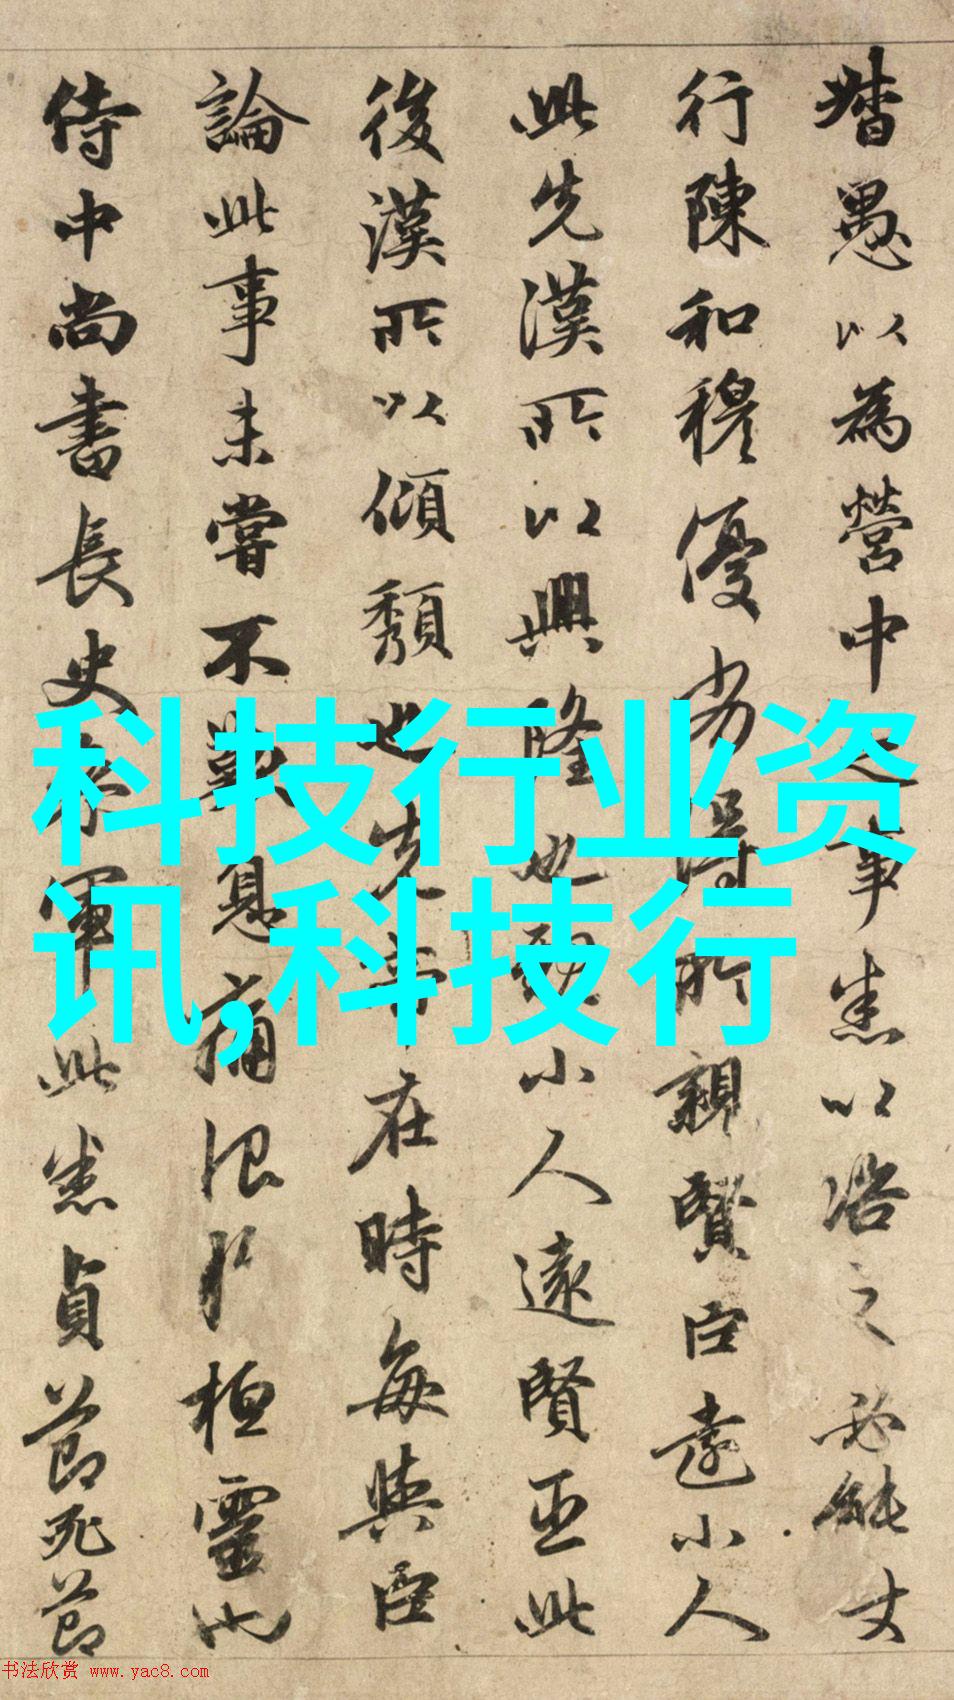 督愚以為營中之事悉以諮之必能丈
行陳和穆優劣得所親賢臣遠小人
此先漢所以興隆也親小人遠賢臣此
後漢所以傾頹也先帝在時每與臣
論此事未嘗不歎息痛恨於桓靈也
侍中尚書長史參軍此悉貞節死節
科技行业资
讯,科技行
书法欣赏 www.yac8.com